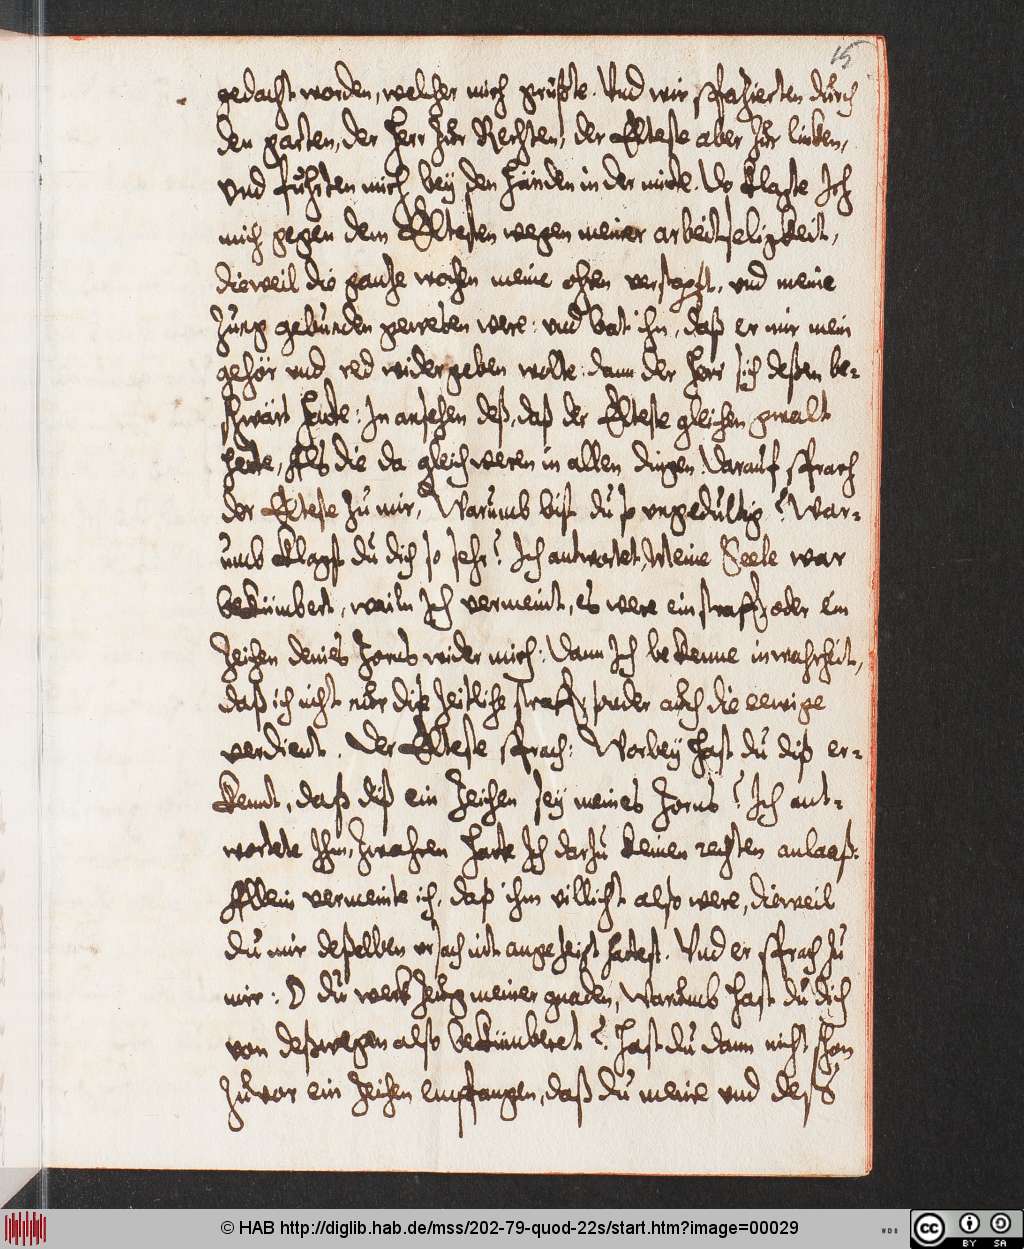 15
gedacht worden, welcher mich grüßte. Und wir spazierten durch
den garten, der Herr zur Rechten, der Elteste aber zur lincken,
und führten mich bey den Händen in der mitte. Do klagte Ich
mich gegen dem Eltesten wegen meiner arbeitseligkeit,
dieweil die gantze wochen meine ohren verstopft, und meine
Zung gebunden gewesen were: und bat ihn, daß er mir mein
gehör und red widergeben wolte: dann der Herr sich deßen be-
schwärt hette: In ansehen deß, daß der Elteste gleichen gwalt
hette, Als die da gleich weren in allen dingen. Darauf sprach
der Elteste zu mir, Warumb bist du so ungedultig? War-
umb klagst du dich so sehr? Ich antwortet, Meine Seele war
bekümbert, weiln Ich vermeint, es were ein straff, oder ein
Zeichen deines Zorns wider mich: Dann Ich bekenne in wahrheit,
daß ich nicht nur diße zeitliche straff, sonder auch die eewige
verdient. Der Elteste sprach: Worbey hast du diß er-
kennt, daß diß ein Zeichen sey meines Zorns? Ich ant-
wortete Ihm, Zwahren hatte Ich darzu keinen rechten anlaaß:
Allein vermeinte ich, daß ihm villicht also were, dieweil
du mir deßelben ursach nit angezeigt hattest. Und er sprach zu
mir: O du werkzeug meiner gnaden, Warumb hast du dich
von deßwegen also bekümberet? Hast du dann nicht schon
zuvor ein Zeichen empfangen, daß du meine und deß
© HAB http://diglib.hab.de/mss/202-79-quod-22s/start.htm?image=00029
WDB
cc
BY SA